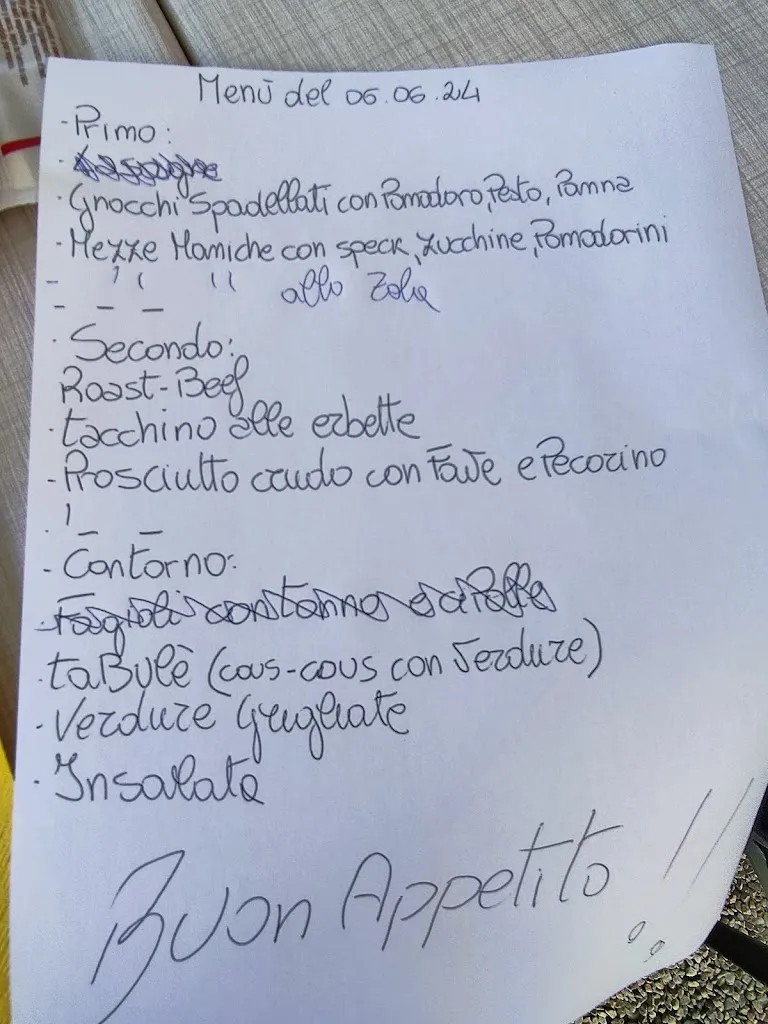 Menù del 06.06.24
- Primo:
· Lasagne
· Gnocchi Spadellati con Pomodoro, Pesto, Panna
· Mezze Maniche con speck, zucchine, Pomodorini
- " " allo Zola
- - -
· Secondo:
Roast-Beef
· tacchino alle erbette
- Prosciutto crudo con Fave e Pecorino
- Contorno:
· Fagioli con tonno e cipolle
· taBulè (cous-cous con Verdure)
· Verdure Grigliate
· Insalata
Buon Appetito!!